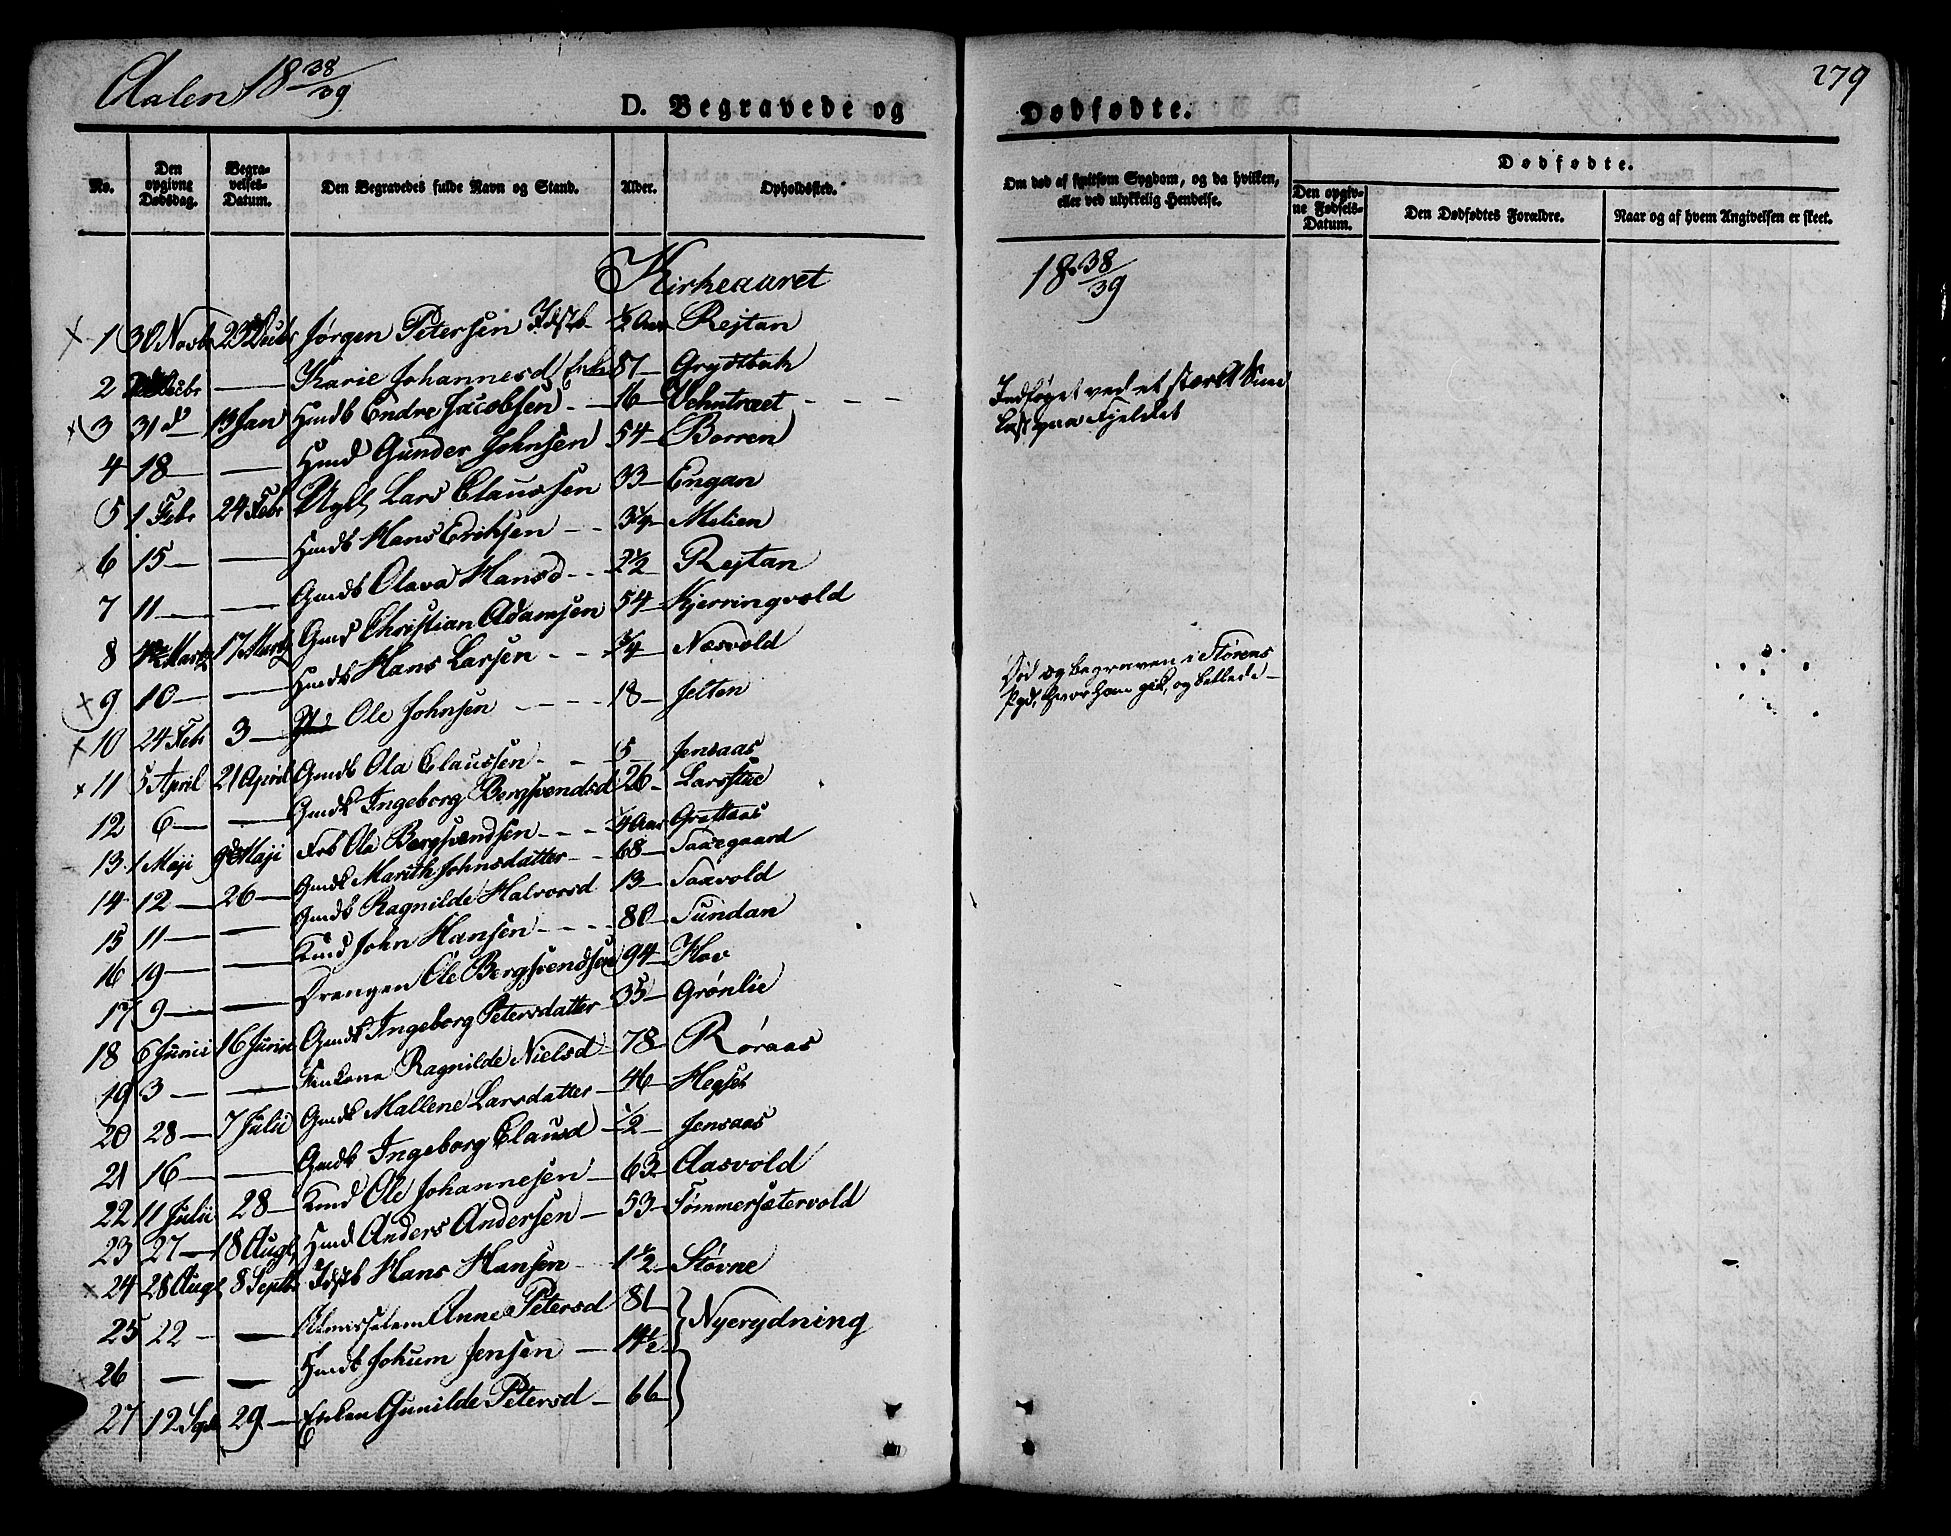 Aalen 18 38/39
279
D. Begravede og Dødfødte.
No.
Den opgivne Dødsdag.
Begravelses-Datum.
Den Begravedes fulde Navn og Stand.
Alder.
Opholdssted.
Om død af smitsom Sygdom, og da hvilken, eller ved ulykkelig Hendelse.
Dødfødte.
Den opgivne Fødsels-Datum.
Den Dødfødtes Forældre.
Naar og af hvem Angivelsen er skeet.
Kirkeaaret 18 38/39
1 30 Novbr 23 Decbr Jørgen Petersen Idstb ½ Aar Rejtan
2 — Karie Johannesd Enke 87 — Grydtbak
3 31 d — 13 Jan Hmds Endre Jacobsen — 16 — Vehntræet
Indføget ved et stærkt
paa Fjeldet
4 18 — — Hmd Gunder Johnsen 54 — Borren
5 1 Febr 24 Febr Ugk Lars Claussen 33 — Engan
6 15 — — Hmds Hans Eriksen — 3/4 — Melien
7 11 — — Gmds Olava Hansd — 2½ Rejtan
8 Martz 17 Martz Gmd Christian Adamsen 54 — Kjerringvold
9 10 — — Hmds Hans Larsen — 3/4 — Næsvold
10 24 Febr 3 — Ole Johnsen — 18 — Jelten
Død og begraven i Størens
Pgd, hvor han gik og betlede —
11 5 April 21 April Gmds Ola Claussen — 5 — Jensaas
12 6 — — Gmdk Ingeborg Bergsvendsd 26 — Larsstue
13 1 Maji 9de Maji Ole Bergsvendsen — ¼ Aar Grøttaas
14 12 — 26 — Gmdk Marith Johnsdatter — 68 — Saxegaard
15 11 — — Gmds Ragnilde Halvorsd 13 — Saxvold
16 19 — — Kmd John Hansen — 80 — Sundan
17 9 — — Drengen Ole Bergsvendsen 94 — Hov
18 6 Junii 16 Junii Gmdk Ingeborg Petersdatter 35 — Grønlie
19 3 — — Ragnilde Nielsd 78 — Røraas
20 28 — 7 Julii Gmdk Mallene Larsdatter — 46 — Hegset
21 16 — — Gmds Ingeborg Clausd — ½ — Jensaas
22 11 Julii 28 — Kmd Ole Johannesen — 63 Aasvold
23 27 — 18 Augt Hmd Anders Andersen — 53 — Tømmersætervold
24 28 Augt 8 Septbr Idstb Hans Hansen 1½ — Støvne
25 22 — — Almisselem Anne Petersd 81 Nyerydning
26 — — Hmds Johum Jensen — 14½
27 12 Septr 29 — Enken Gunilde Petersd — 66